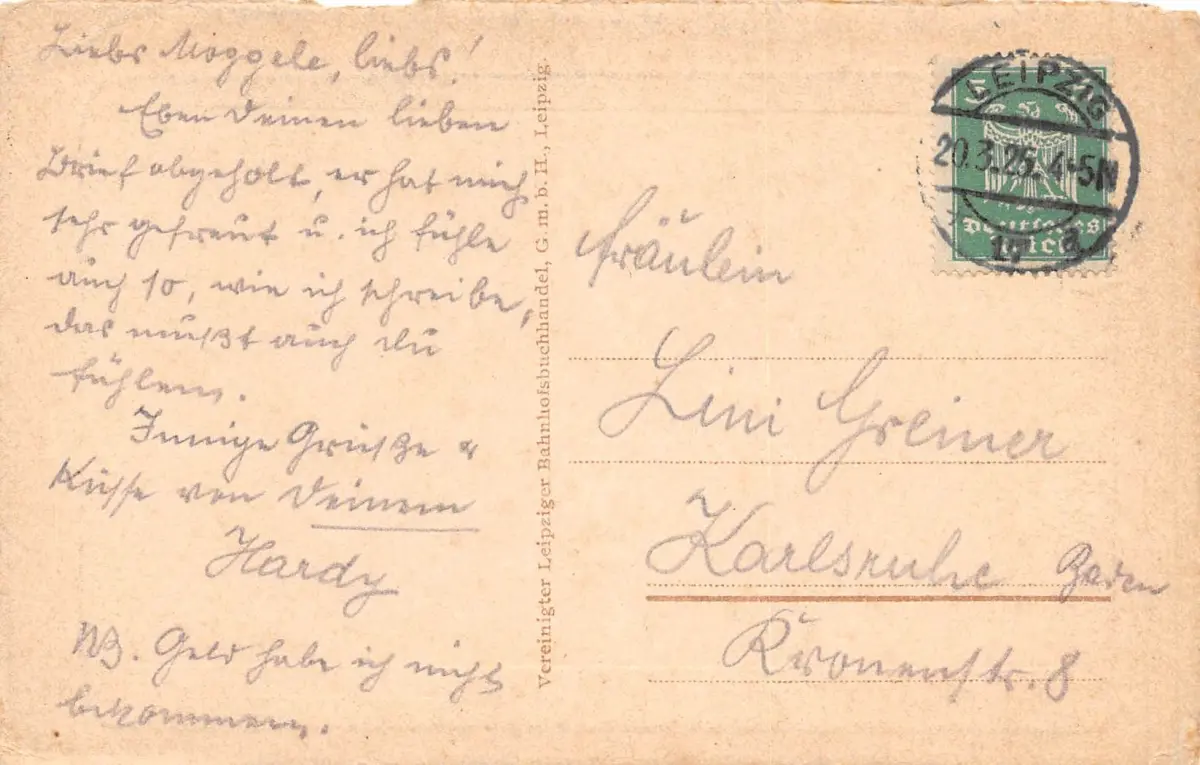 Liebs Moggele, liebs!
Eben Deinen lieben
Brief abgeholt, er hat mich
sehr gefreut u. ich fühle
auch so, wie ich schreibe,
das mußt auch Du
fühlen.
Innige Grüße &
Küsse von Deinem
Hardy
NB. Geld habe ich nicht
bekommen.
Vereinigter Leipziger Bahnhofsbuchhandel, G. m. b. H., Leipzig.
LEIPZIG
20.3.25. 4-5N
17
5
Deutsches
Reich
Fräulein
Lini Greiner
Karlsruhe Baden
Kronenstr. 8